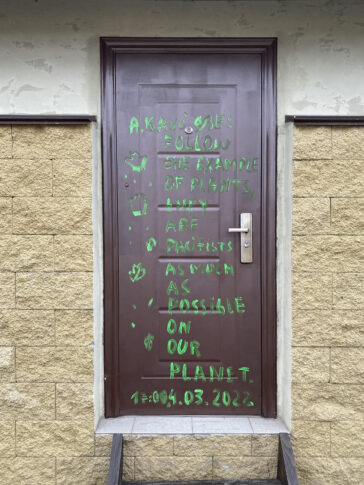 FOLLOW
THE EXAMPLE
OF PLANTS,
THEY
ARE
PACIFISTS
AS MUCH
AS
POSSIBLE
ON
OUR
PLANET.
04.03.2022